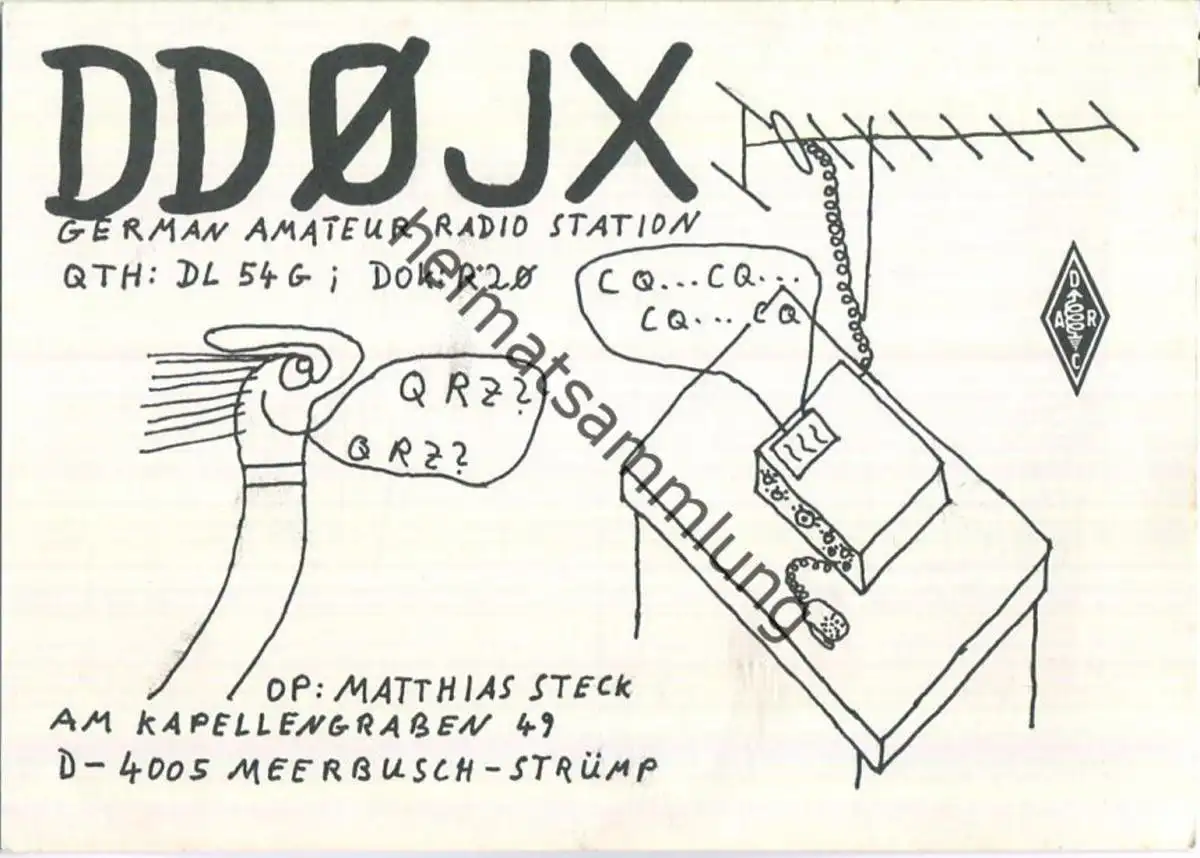 DDØJX
GERMAN AMATEUR RADIO STATION
QTH: DL 54G ; DOK: R 2Ø
CQ...CQ...
CQ... CQ
D
A R
C
QRZ?
QRZ?
heimatsammlung
OP: MATTHIAS STECK
AM KAPELLENGRABEN 49
D-4005 MEERBUSCH-STRÜMP